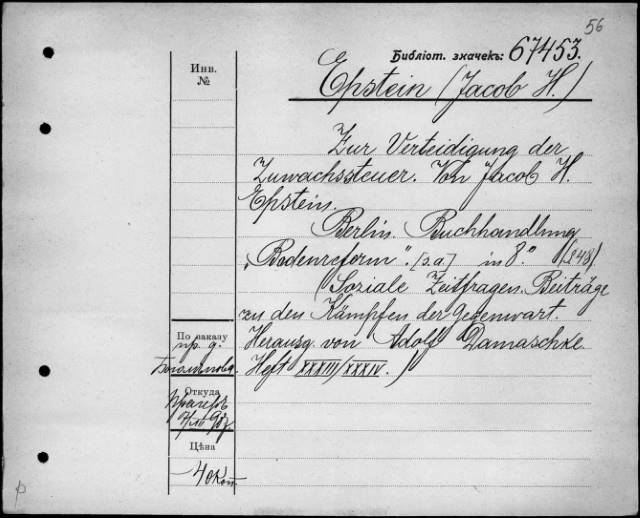 56
Библіот. значекъ: 67453.
Epstein (Jacob H.)
Инв.
№
Zur Verteidigung der
Zuwachssteuer. Von Jacob H.
Epstein.
Berlin. Buchhandlung
„Bodenreform". [s.a.] in 8.° (248)
(Soziale Zeitfragen. Beiträge
zu den Kämpfen der Gegenwart.
Herausg. von Adolf Damaschke
Heft XXXIII/XXXIV.)
По заказу
пр. д.
Откуда
Цѣна
40 коп.